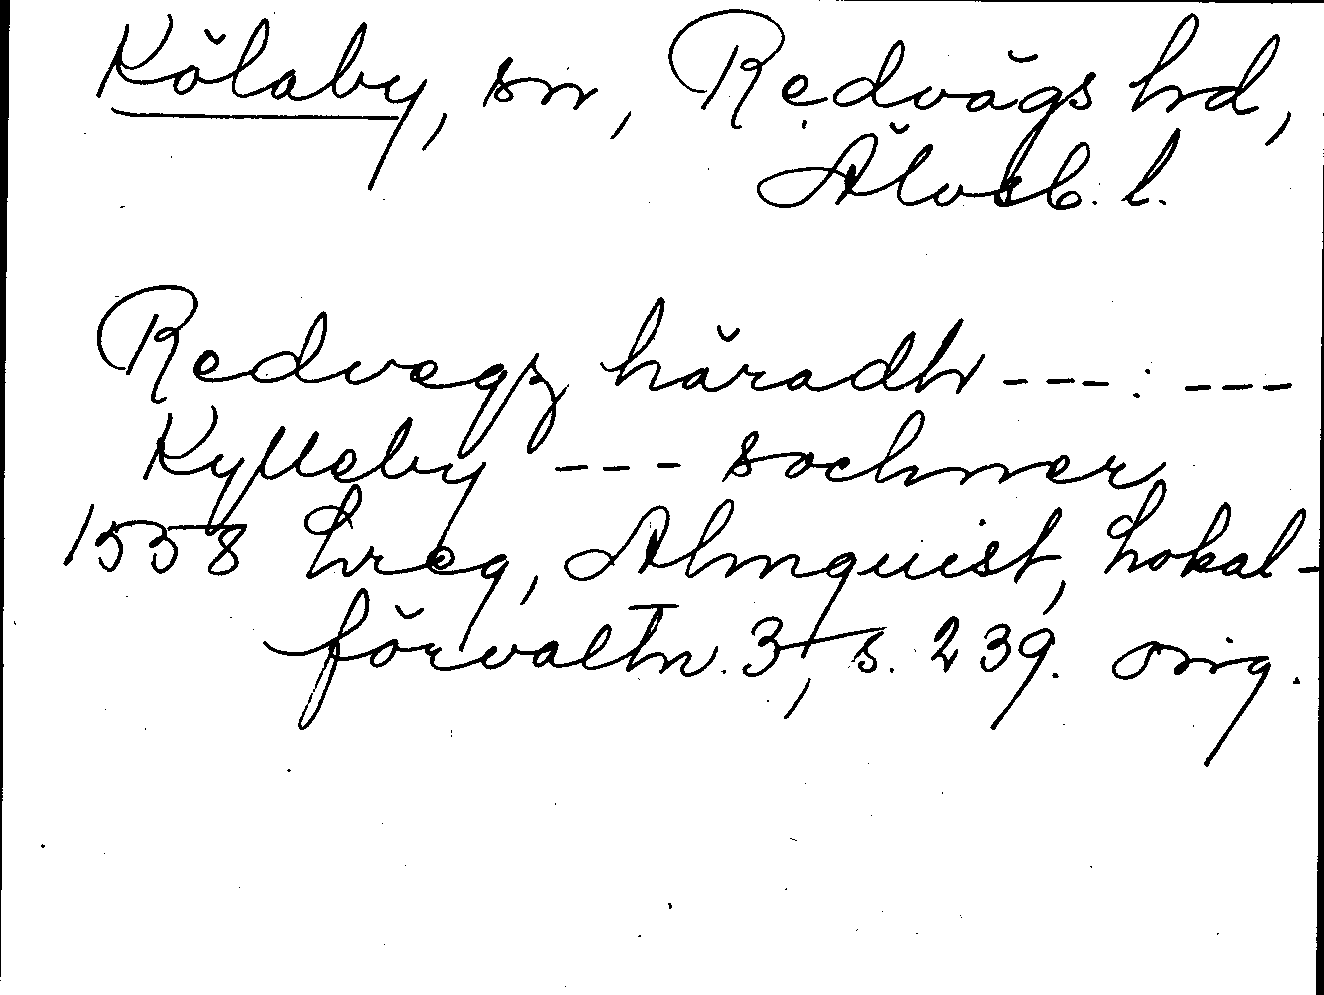 Kölaby, sn, Redvägs hd,
Älvsb. l.
Redvegz häradh ---: ---
Kylleby --- sochner
1558 Lreg, Almquist, Lokal-
förvaltn. 3, s. 239. orig.